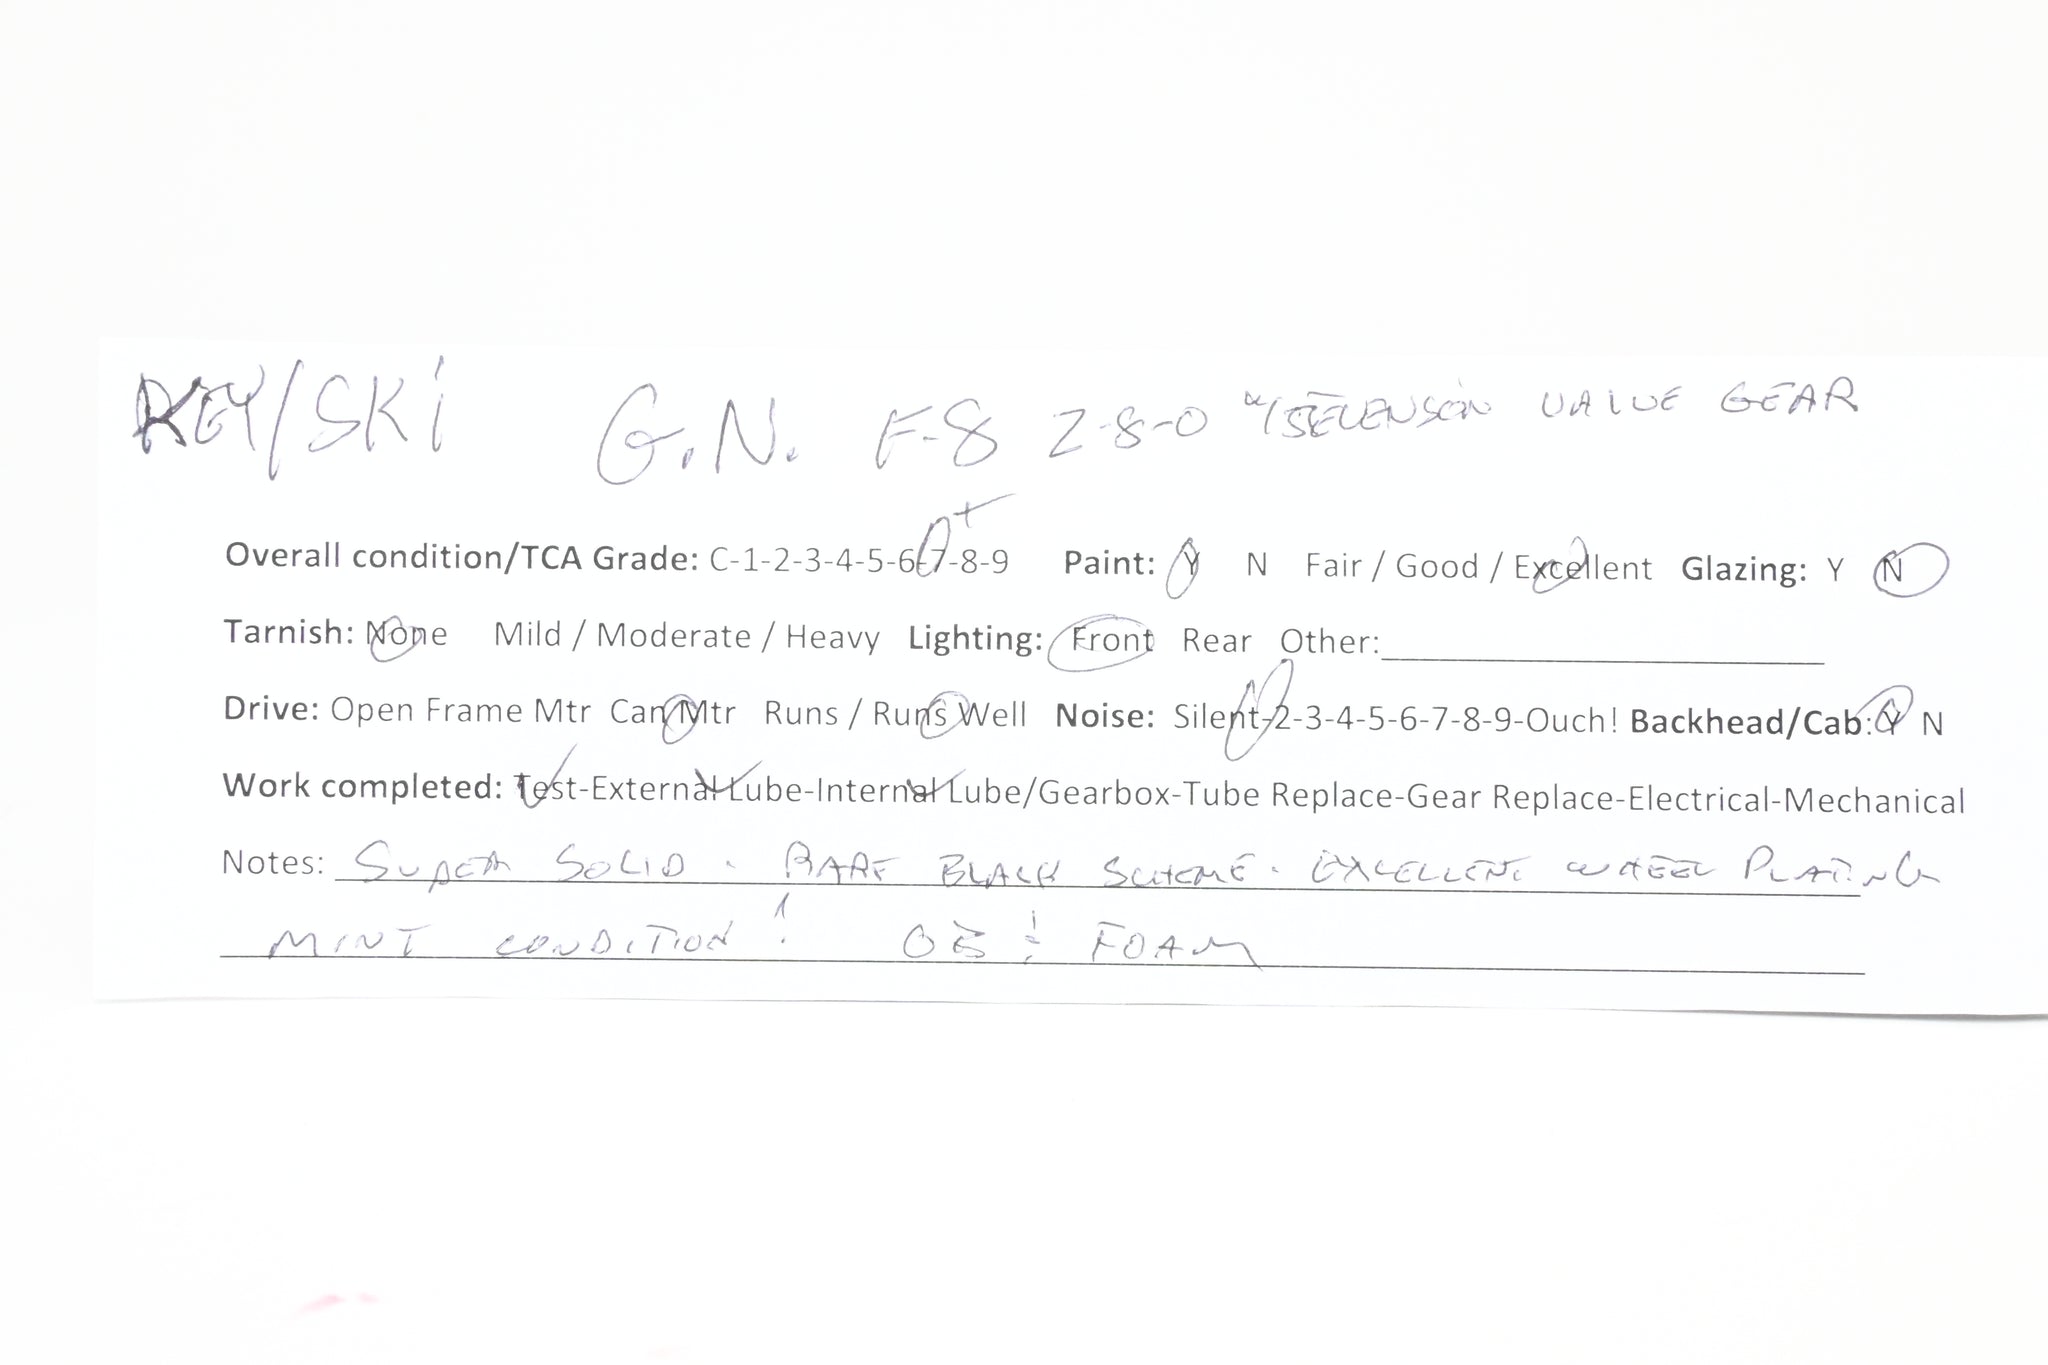 KEY/SKI G.N. F-8 2-8-0 w/STEVENSON VALVE GEAR
Overall condition/TCA Grade: C-1-2-3-4-5-6-7-8-9 + Paint: Y N Fair / Good / Excellent Glazing: Y N
Tarnish: None Mild / Moderate / Heavy Lighting: Front Rear Other:
Drive: Open Frame Mtr Can Mtr Runs / Runs Well Noise: Silent-2-3-4-5-6-7-8-9-Ouch! Backhead/Cab: Y N
Work completed: Test-External Lube-Internal Lube/Gearbox-Tube Replace-Gear Replace-Electrical-Mechanical
Notes: SUPER SOLID. RARE BLACK SCHEME. EXCELLENT WHEEL PLATING
MINT CONDITION! OB & FOAM